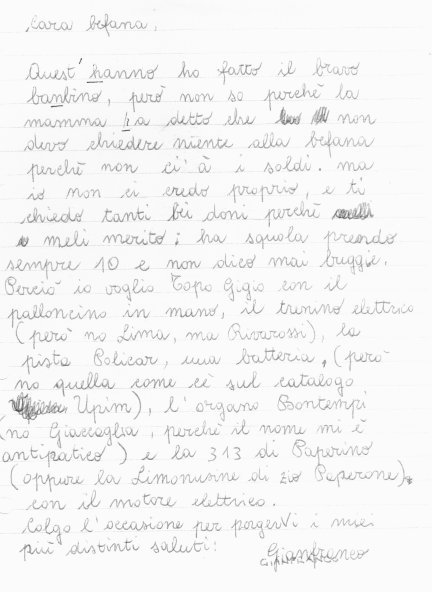 Cara befana,
Quest'hanno ho fatto il bravo
banbino, però non so perchè la
mamma à detto che non
devo chiedere niente alla befana
perchè non ci' à i soldi. ma
io non ci credo proprio, e ti
chiedo tanti bei doni perchè
meli merito; ha squola prendo
sempre 10 e non dico mai buggie.
Perciò io voglio Topo Gigio con il
palloncino in mano, il trenino elettrico
(però no Lima, ma Rivarossi), la
pista Policar, una batteria, (però
no quella come cè sul catalogo
Upim), l'organo Bontempi
(no Giaccaglia, perchè il nome mi è
antipatico) e la 313 di Paperino
(oppure la Limonusine di zio Paperone),
con il motore elettrico.
Colgo l'occasione per porgerVi i miei
più distinti saluti:
Gianfranco